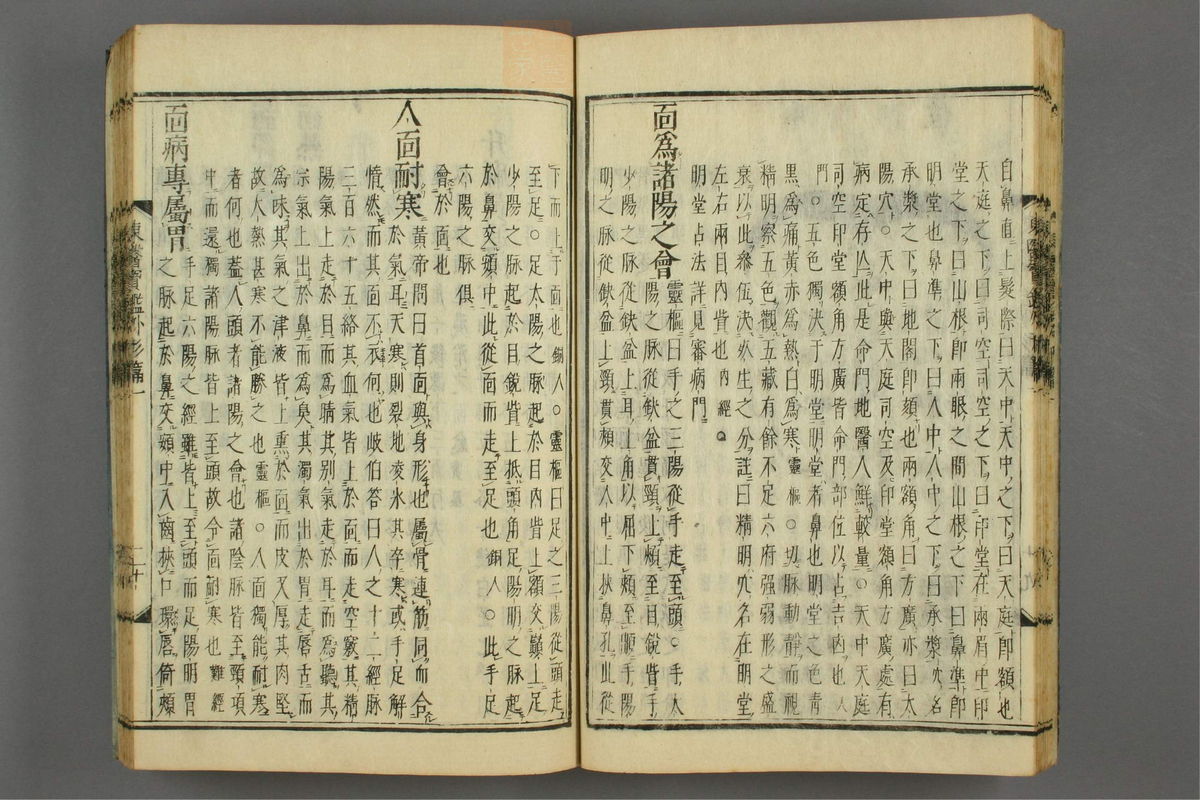 自鼻直上髮際曰天中天中之下曰天庭卽額也
天庭之下曰司空司空之下曰印堂在兩眉中印
堂之下曰山根卽兩眼之間山根之下曰鼻準卽
明堂也鼻準之下曰人中人中之下曰承漿穴名
承漿之下曰地閣卽頦也兩額角曰方廣亦曰太
陽穴○天中與天庭司空及印堂額角方廣處有
病定存亡此是命門地醫人鮮較量○天中天庭
司空印堂額角方廣皆命門部位以占吉凶也入
門○五色獨決于明堂明堂者鼻也明堂之色青
黑爲痛黃赤爲熱白爲寒靈樞○切脉動靜而視
精明察五色觀五藏有餘不足六府强弱形之盛
衰以此參伍決死生之分註曰精明穴名在明堂
左右兩目內眥也內經
明堂占法詳見審病門
面爲諸陽之會靈樞曰手之三陽從手走至頭○手太
陽之脉從缺盆貫頸上頰至目銳眥手
少陽之脉從缺盆上耳上角以屈下頰至䪼手陽
明之脉從缺盆上頸貫頰交人中上挾鼻孔此從
下而上於面也銅人○靈樞曰足之三陽從頭走
至足○足太陽之脉起於目內眥上額交巓上足
少陽之脉起於目銳眥上抵頭角足陽明之脉起
於鼻交頞中此從面而走至足也銅人○此手足
六陽之脉俱
會於面也
人面耐寒黃帝問曰首面與身形也屬骨連筋同血合
於氣耳天寒則裂地凌氷其卒寒或手足解
惰然而其面不衣何也歧伯答曰人之十二經脉
三百六十五絡其血氣皆上於面而走空竅其精
陽氣上走於目而爲睛其别氣走於耳而爲聽其
宗氣上出於鼻而爲臭其濁氣出於胃走唇舌而
爲味其氣之津液皆上熏於面而皮又厚其肉堅
故大熱甚寒不能勝之也靈樞○人面獨能耐寒
者何也蓋人頭者諸陽之會也諸陰脉皆至頸項
中而還獨諸陽脉皆上至頭故令面耐寒也難經
面病專屬胃手足六陽之經雖皆上至頭而足陽明胃
之脉起於鼻交頞中入齒挾口環唇倚頰
東醫寶鑑外形篇一